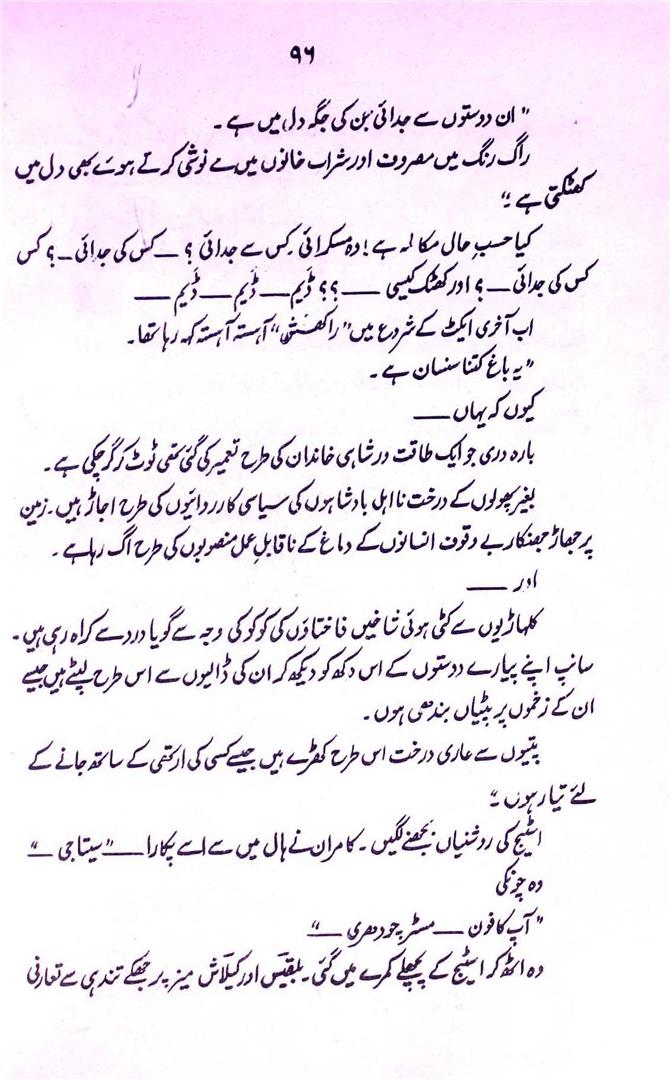 ۹۶
" ان دوستوں سے جدائی بن کی جگہ دل میں ہے ۔
راگ رنگ میں مصروف اور شراب خانوں میں مے نوشی کرتے ہوئے بھی دل میں
کھٹکتی ہے ۔"
کیا حسبِ حال مکالمہ ہے ! وہ مسکرائی ۔ کس سے جدائی ؟ — کس کی جدائی — ؟ کس
کس کی جدائی — ؟ اور کھٹک کیسی — ؟؟ ڈیم — ڈیم — ڈیم —
اب آخری ایکٹ کے شروع میں "راکھشش" آہستہ آہستہ کہہ رہا تھا ۔
" یہ باغ کتنا سنسان ہے ۔
کیوں کہ یہاں —
بارہ دری جو ایک طاقت ور شاہی خاندان کی طرح تعمیر کی گئی تھی ٹوٹ کر گر چکی ہے ۔
بغیر پھولوں کے درخت نا اہل بادشاہوں کی سیاسی کارروائیوں کی طرح اجاڑ ہیں ۔ زمین
پر جھاڑ جھنکار بے وقوف انسانوں کے دماغ کے ناقابلِ عمل منصوبوں کی طرح اگ رہا ہے ۔
اور —
کلہاڑیوں سے کٹی ہوئی شاخیں فاختاؤں کی کوکو کی وجہ سے گویا درد سے کراہ رہی ہیں ۔
سانپ اپنے پیارے دوستوں کے اس دکھ کو دیکھ کر ان کی ڈالیوں سے اس طرح لپٹے ہیں جیسے
ان کے زخموں پر پٹیاں بندھی ہوں ۔
پتیوں سے عاری درخت اس طرح کھڑے ہیں جیسے کسی کی ارتھی کے ساتھ جانے کے
لئے تیار ہوں ۔"
اسٹیج کی روشنیاں بجھنے لگیں ۔ کامران نے ہال میں سے اسے پکارا — "سیتا جی —"
وہ چونکی
" آپ کا فون — مسٹر چودھری —"
وہ اٹھ کر اسٹیج کے پچھلے کمرے میں گئی ۔ بلقیس اور کیلاش میز پر جھکے تندہی سے تعارفی